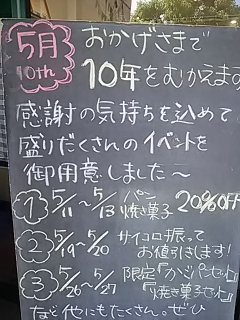 5月
10th
おかげさまで
10年をむかえます
感謝の気持ちを込めて
盛りだくさんのイベントを
御用意しました～
① 5/11～5/13 パン 焼き菓子 20%OFF
② 5/19～5/20 サイコロ振って お値引きします!
③ 5/26～5/27 限定『かごパンセット』『焼き菓子セット』
など他にもたくさん。ぜひ